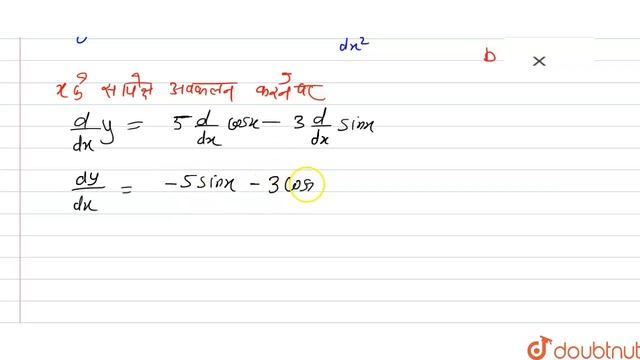 dx²
b ×
x के सापेक्ष अवकलन करने पर
d/dx y = 5 d/dx cosx - 3 d/dx sinx
dy/dx = -5 sinx - 3 cos
doubtnut